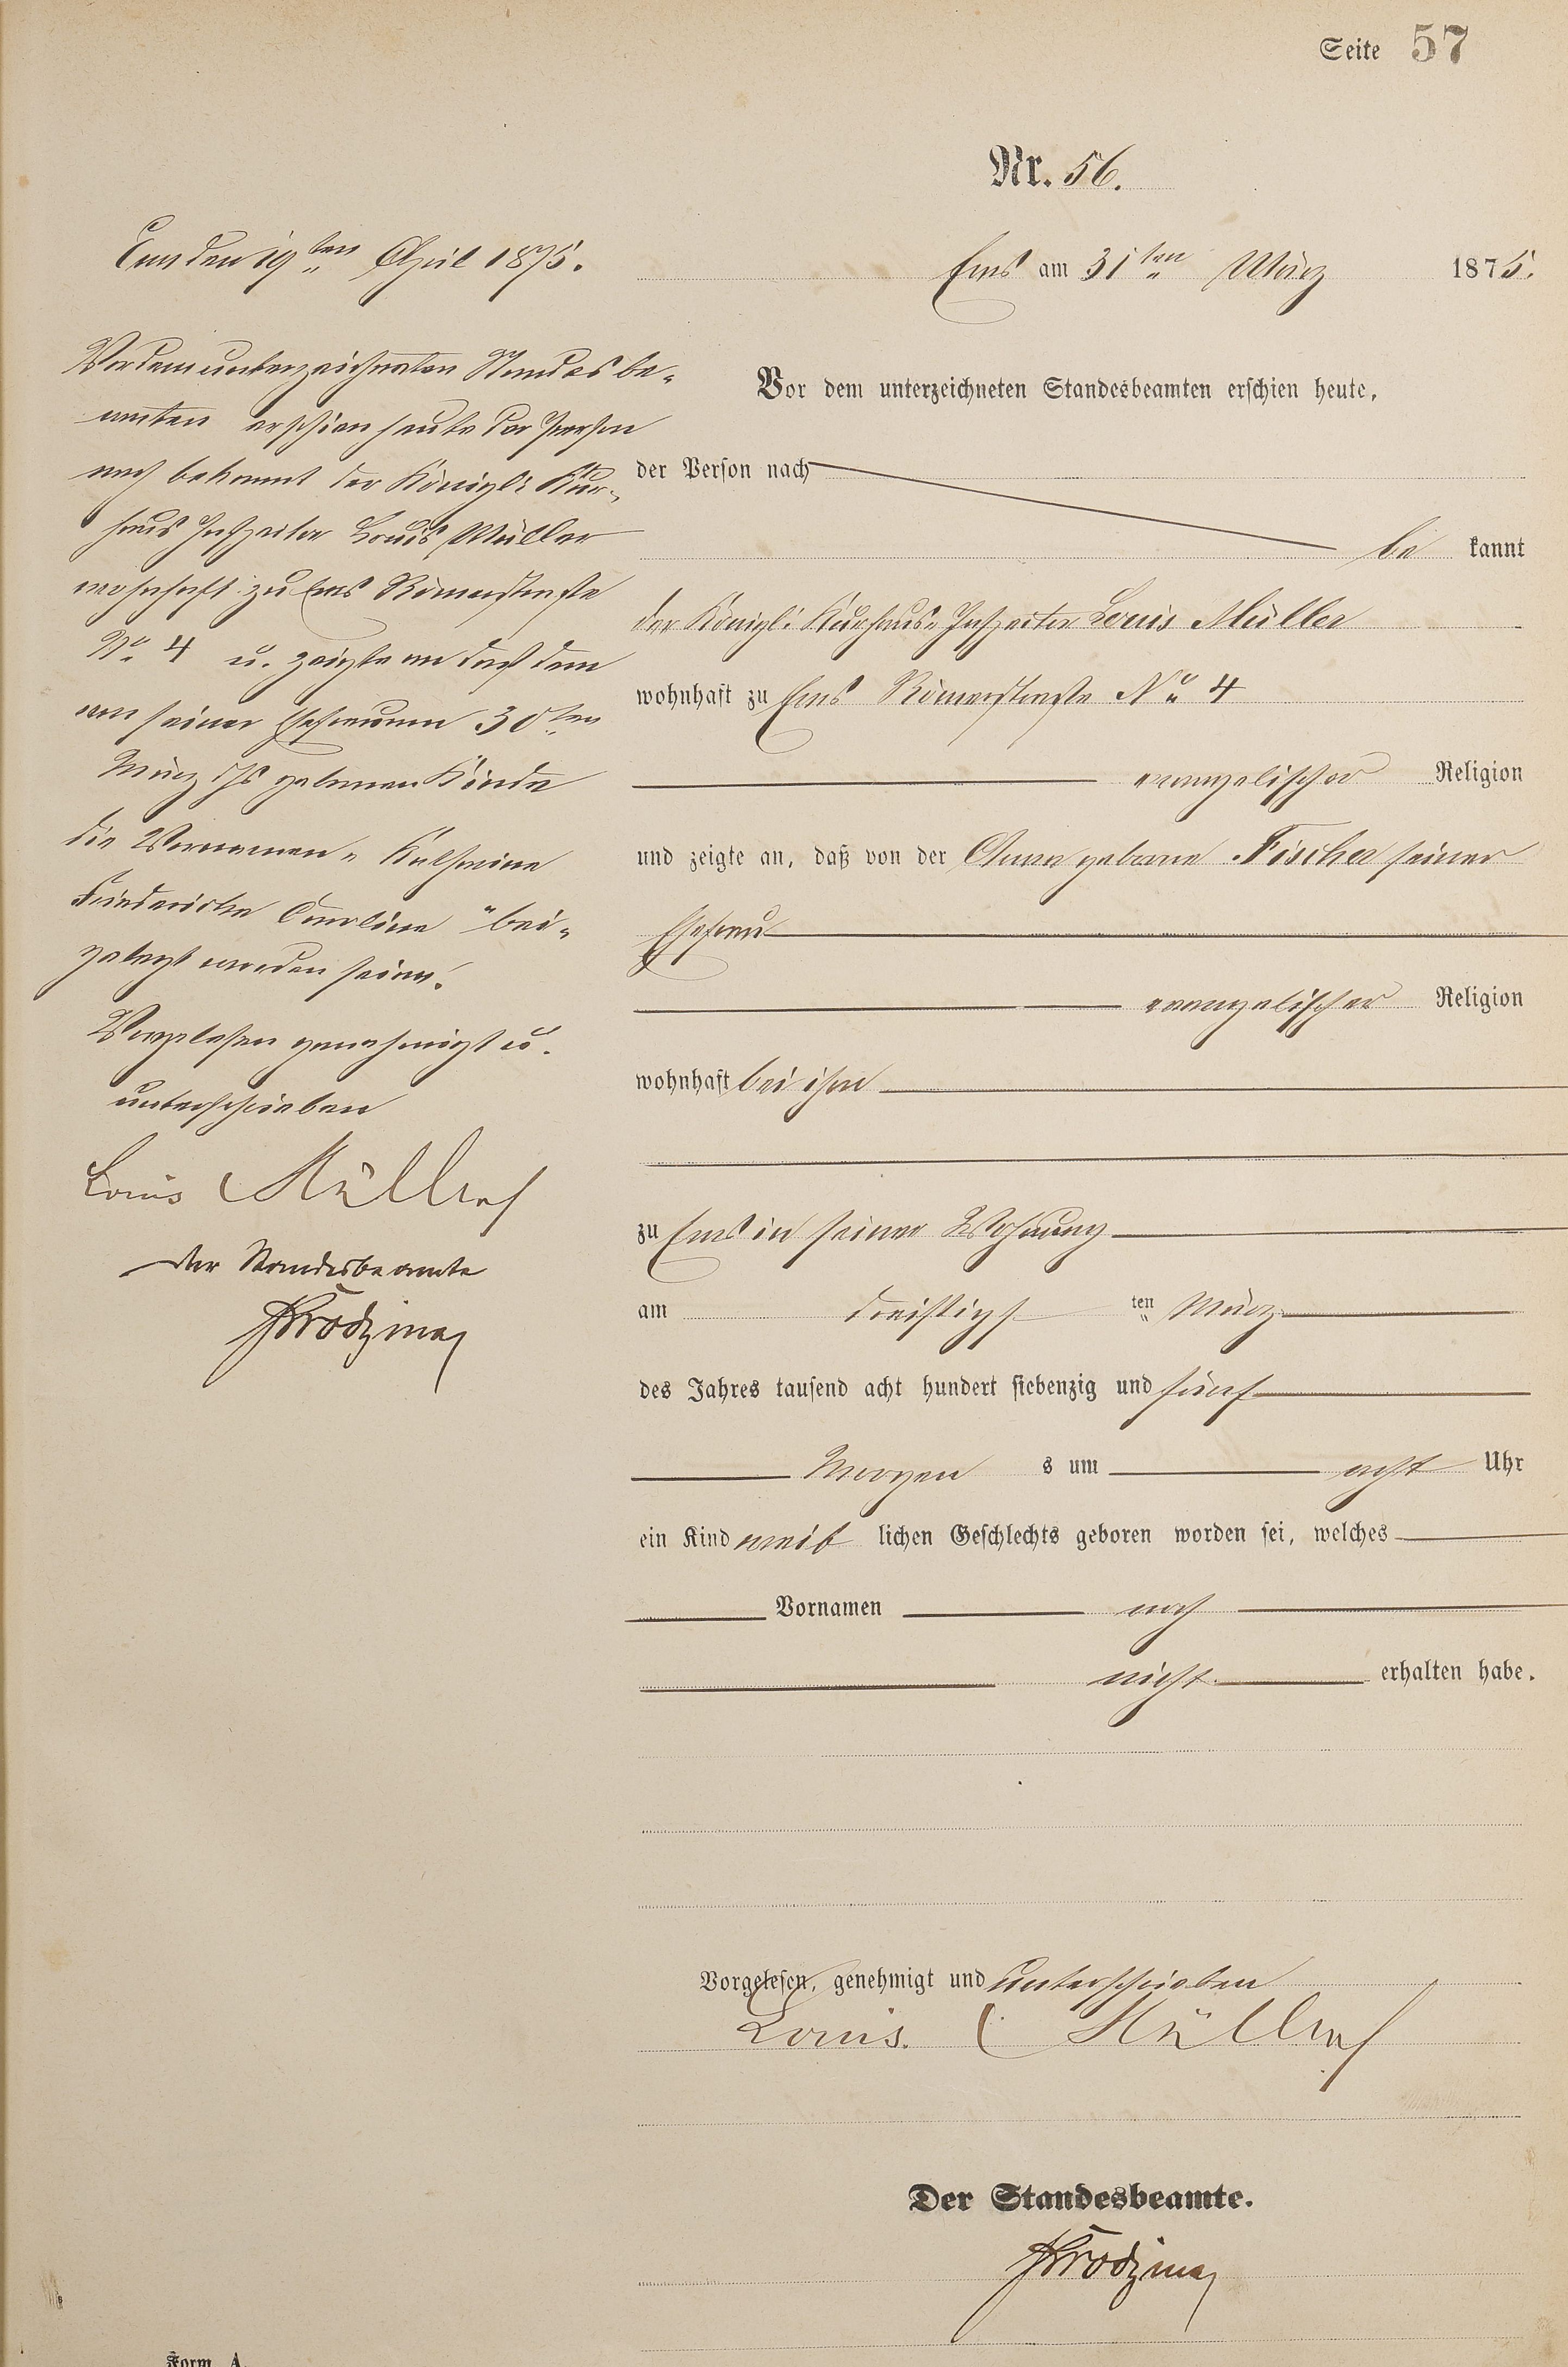 Seite 57
Nr. 56.
Ems am 31ten März 1875.
Vor dem unterzeichneten Standesbeamten erschien heute,
der Person nach
be kannt
der Königl: Kurhaus-Inspector Louis Müller
wohnhaft zu Ems Römerstraße No 4
evangelischer Religion
und zeigte an, daß von der Anna geborne Fischer seiner
Ehefrau
evangelischer Religion
wohnhaft bei ihm
zu Ems in seiner Wohnung
am dreißigs ten März
des Jahres tausend acht hundert siebenzig und fünf
Morgen s um acht Uhr
ein Kind weib lichen Geschlechts geboren worden sei, welches
Vornamen noch
nicht erhalten habe.
Vorgelesen, genehmigt und unterschrieben
Louis Müller
Der Standesbeamte.
Ems den 19ten April 1875.
Vor dem unterzeichneten Standesbe-
amten erschien heute der Person
nach bekannt der Königl: Kur-
haus Inspector Louis Müller
wohnhaft zu Ems Römerstraße
No 4 u. zeigte an daß dem
von seiner Ehefrau am 30ten
März ds geborenen Kinde
die Vornamen „Katharine
Friedericke Caroline" bei-
gelegt worden seien.
Vorgelesen genehmigt u.
unterschrieben
Louis Müller
Der Standesbeamte
Form. A.